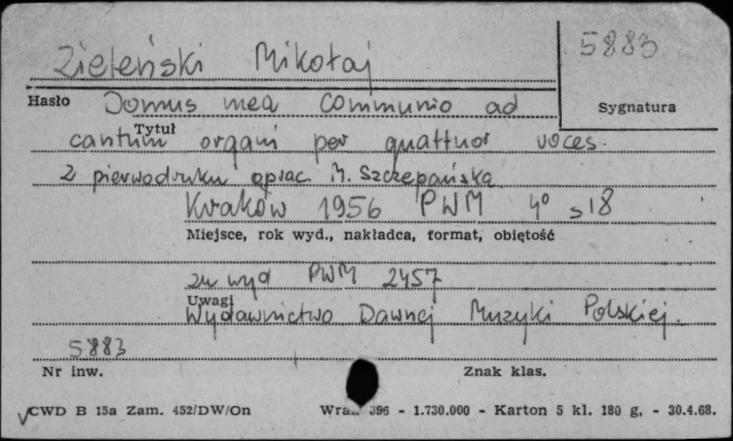 Zieleński Mikołaj 5883
Hasło Domus mea Communio ad Sygnatura
Tytuł
cantum organi per quattuor voces.
Z pierwodruku oprac. M. Szczepańska
Kraków 1956 PWM 4° s 18
Miejsce, rok wyd., nakładca, format, objętość
zn wyd PWM 2457
Uwagi
Wydawnictwo Dawnej Muzyki Polskiej.
5883
Nr inw. Znak klas.
CWD B 15a Zam. 452/DW/On 396 - 1.730.000 - Karton 5 kl. 180 g, - 30.4.68.